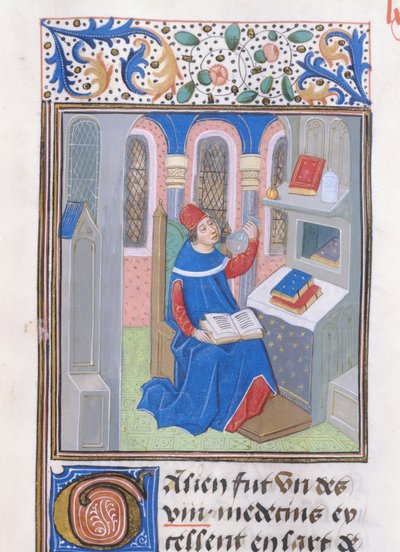 Galien fut vn des
viii medecins ex
cellent en lart de